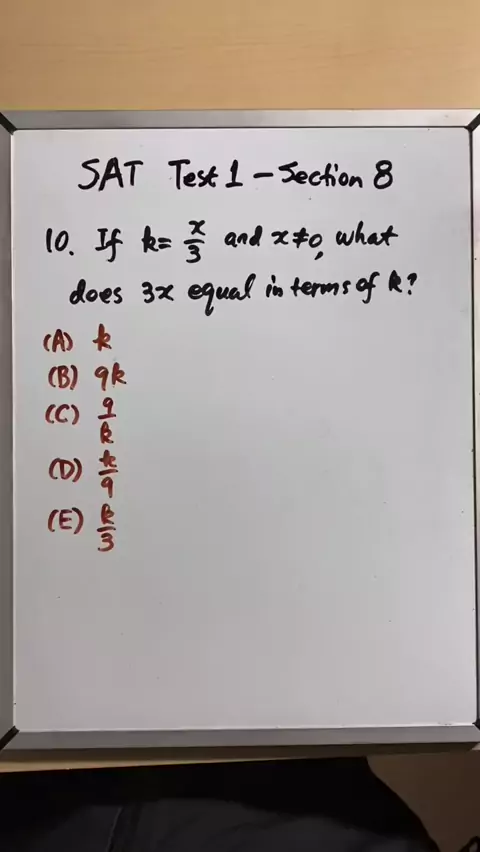 SAT Test 1 – Section 8
10. If k = x/3 and x ≠ 0, what
does 3x equal in terms of k?
(A) k
(B) 9k
(C) 9/k
(D) k/9
(E) k/3